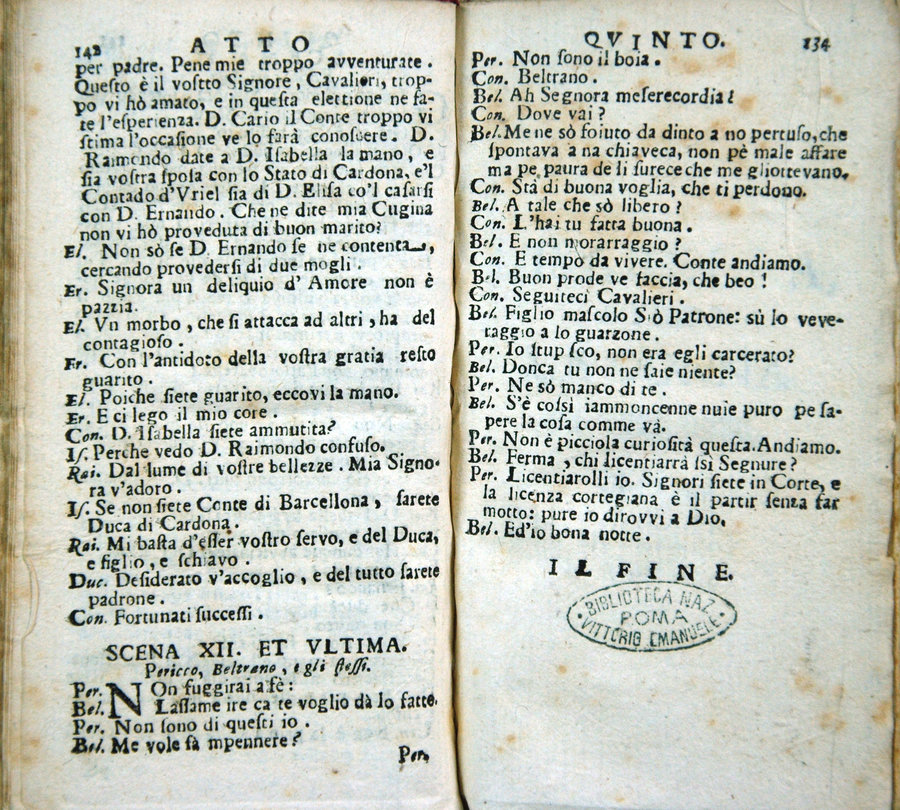 142 ATTO
per padre. Pene mie troppo avventurate.
Questo è il vostto Signore, Cavalieri, trop-
po vi hò amato, e in questa elettione ne fa-
te l'esperienza. D. Carlo il Conte troppo vi
stima l'occasione ve lo farà conoscere. D.
Raimondo date a D. Isabella la mano, e
sia vostra sposa con lo Stato di Cardona, e'l
Contado d'Vriel sia di D. Elisa co'l casarsi
con D. Ernando. Che ne dite mia Cugina
non vi hò proveduta di buon marito?
El. Non sò se D. Ernando se ne contenta,
cercando provedersi di due mogli.
Er. Signora un deliquio d' Amore non è
pazzia.
El. Vn morbo, che si attacca ad altri, ha del
contagioso.
Er. Con l'antidoto della vostra gratia resto
guarito.
El. Poiche siete guarito, eccovi la mano.
Er. E ci lego il mio core.
Con. D. Isabella siete ammutita?
Is. Perche vedo D. Raimondo confuso.
Rai. Dal lume di vostre bellezze. Mia Signo-
ra v'adoro.
Is. Se non siete Conte di Barcellona, sarete
Duca di Cardona.
Rai. Mi basta d'esser vostro servo, e del Duca,
e figlio, e schiavo.
Duc. Desiderato v'accoglio, e del tutto sarete
padrone.
Con. Fortunati successi.
SCENA XII. ET VLTIMA.
Pericco, Beltrano, e gli stessi.
Per. NOn fuggirai a fè:
Bel. Lassame ire ca te voglio dà lo fatto.
Per. Non sono di questi io.
Bel. Me vole fà mpennere?
Per.
QVINTO. 134
Per. Non sono il boia.
Con. Beltrano.
Bel. Ah Segnora meserecordia!
Con. Dove vai?
Bel. Me ne sò foiuto da dinto a no pertuso, che
spontava a na chiaveca, non pè male affare
ma pe paura de li surece che me gliottevano.
Con. Stà di buona voglia, che ti perdono.
Bel. A tale che sò libero?
Con. L'hai tu fatta buona.
Bel. E non morarraggio?
Con. E tempo da vivere. Conte andiamo.
Bel. Buon prode ve faccia, che beo!
Con. Seguiteci Cavalieri.
Bel. Figlio mascolo Siò Patrone: sù lo veve-
raggio a lo guarzone.
Per. Io stup sco, non era egli carcerato?
Bel. Donca tu non ne saie niente?
Per. Ne sò manco di te.
Bel. S'è cossì iammoncenne nuie puro pe sa-
pere la cosa comme và.
Per. Non è picciola curiosità questa. Andiamo.
Bel. Ferma, chi licentiarrà ssi Segnure?
Per. Licentiarolli io. Signori siete in Corte, e
la licenza cortegiana è il partir senza far
motto: pure io dirovvi a Dio,
Bel. Ed'io bona notte.
IL FINE.
BIBLIOTECA NAZ.
ROMA
VITTORIO EMANUELE